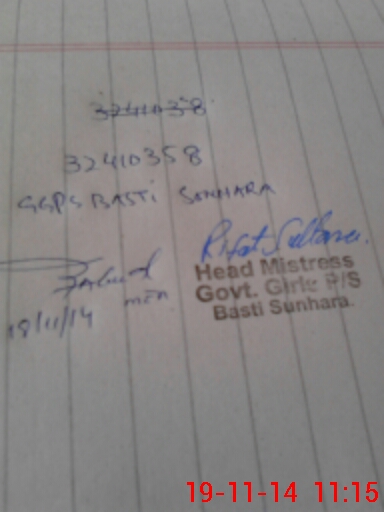 3241038
32410358
GGPS BASTi SONHARA
Rifat Sultana.
Head Mistress
Govt. Girls P/S
Basti Sunhara.
18/11/14
19-11-14 11:15